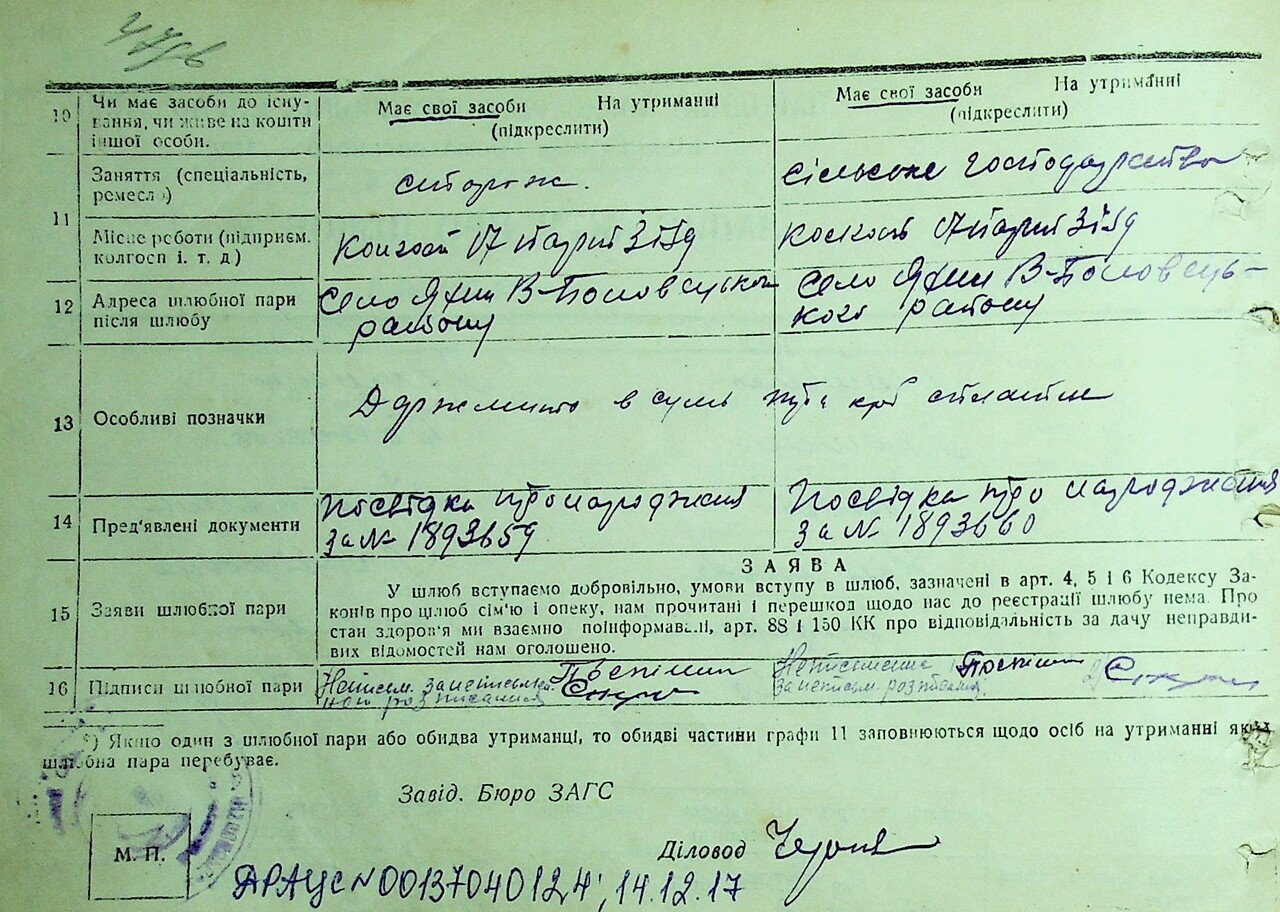 10 Чи має засоби до існу-
вання, чи живе на кошти
іншої особи.
Має свої засоби На утриманні
(підкреслити)
Має свої засоби На утриманні
(підкреслити)
11
Заняття (спеціальність,
ремесло)
сторож.
сільське господарство
Місце роботи (підприєм.
колгосп і. т. д)
Колгосп 17 Партз'їзд
Колгосп 17 Партз'їзд
12 Адреса шлюбної пари
після шлюбу
Село
району
Село
кого району
13 Особливі позначки
в сумі крб
14 Пред'явлені документи
Посвідка про народження
за № 1893659
Посвідка про народження
за № 1893660
15 Заяви шлюбної пари
ЗАЯВА
У шлюб вступаємо добровільно, умови вступу в шлюб, зазначені в арт. 4, 5 і 6 Кодексу За-
конів про шлюб сім'ю і опеку, нам прочитані і перешкод щодо нас до реєстрації шлюбу нема. Про
стан здоров'я ми взаємно поінформавалі, арт. 88 і 150 КК про відповідальність за дачу неправди-
вих відомостей нам оголошено.
16 Підписи шлюбної пари
*) Якщо один з шлюбної пари або обидва утриманці, то обидві частини графи 11 заповнюються щодо осіб на утриманні яких
шлюбна пара перебуває.
Завід. Бюро ЗАГС
М. П.
Діловод
ДРАЦС N 00137040124; 14.12.17